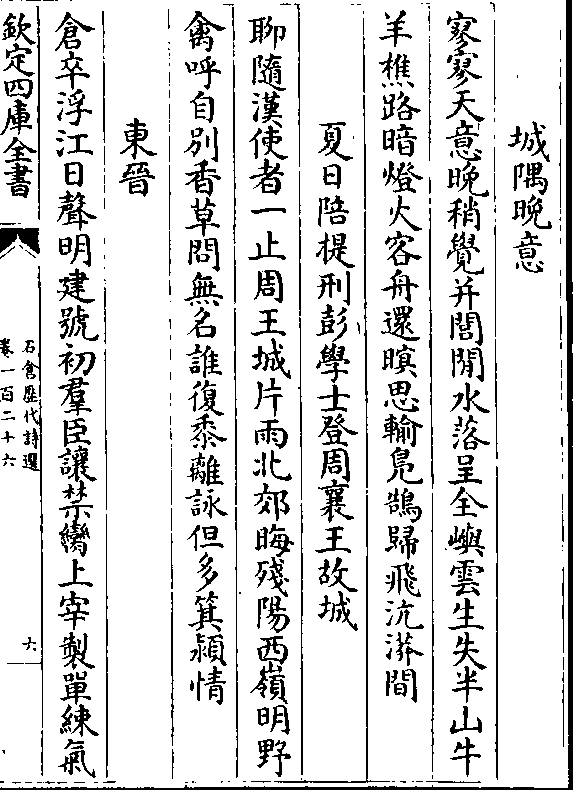 城隅晚意
寥寥天意晚稍覺井閭閒水落呈全嶼雲生失半山牛
羊樵路暗燈火客舟還暝思輸鳧鵠歸飛沆漭間
夏日陪提刑彭學士登周襄王故城
聊隨漢使者一止周王城片雨北郊晦殘陽西嶺明野
禽呼自別香草問無名誰復黍離詠但多箕潁情
東晉
倉卒浮江日聲明建號初羣臣讓禁臠上宰製單練氣
欽定四庫全書
石倉歷代詩選
卷一百二十六
六